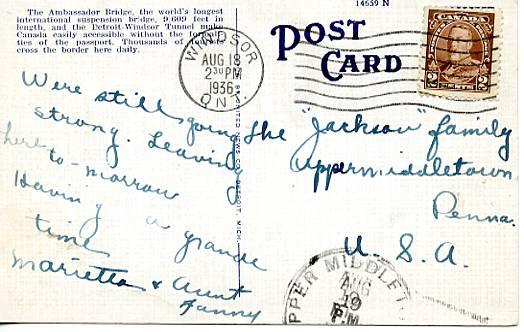 14659 N
The Ambassador Bridge, the world's longest
international suspension bridge, 9,609 feet in
length, and the Detroit-Windsor Tunnel make
Canada easily accessible without the formali-
ties of the passport. Thousands of
cross the border here daily.
POST
CARD
WINDSOR
AUG 18
230 PM
1936
ONT.
CANADA
2 2
Were still going
strong. Leaving
here to-morrow
Having a grande
time
Marietta & Aunt
Fanny
NEWS CO., DETROIT, MICH.
The "Jackson" family
Uppermiddletown
Penna.
U.S.A.
UPPER MIDDLET
AUG
19
PM